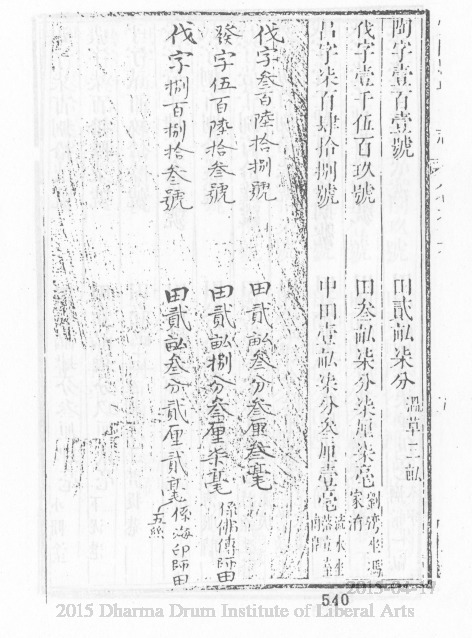 陶字壹百壹號 田貳畝柒分 溫草二畝
伐字壹千伍百玖號 田叁畝柒分柒厘柒毫
呂字柒百肆拾捌號 中田壹畝柒分叁厘壹毫
伐字叁百陸拾捌號 田貳畝叁分叁厘叁毫
發字伍百陸拾叁號 田貳畝捌分叁厘柒毫 係佛傳師田
伐字捌百捌拾叁號 田貳畝叁分貳厘貳毫五絲 係海印師田
540
2015-04-17
2015 Dharma Drum Institute of Liberal Arts